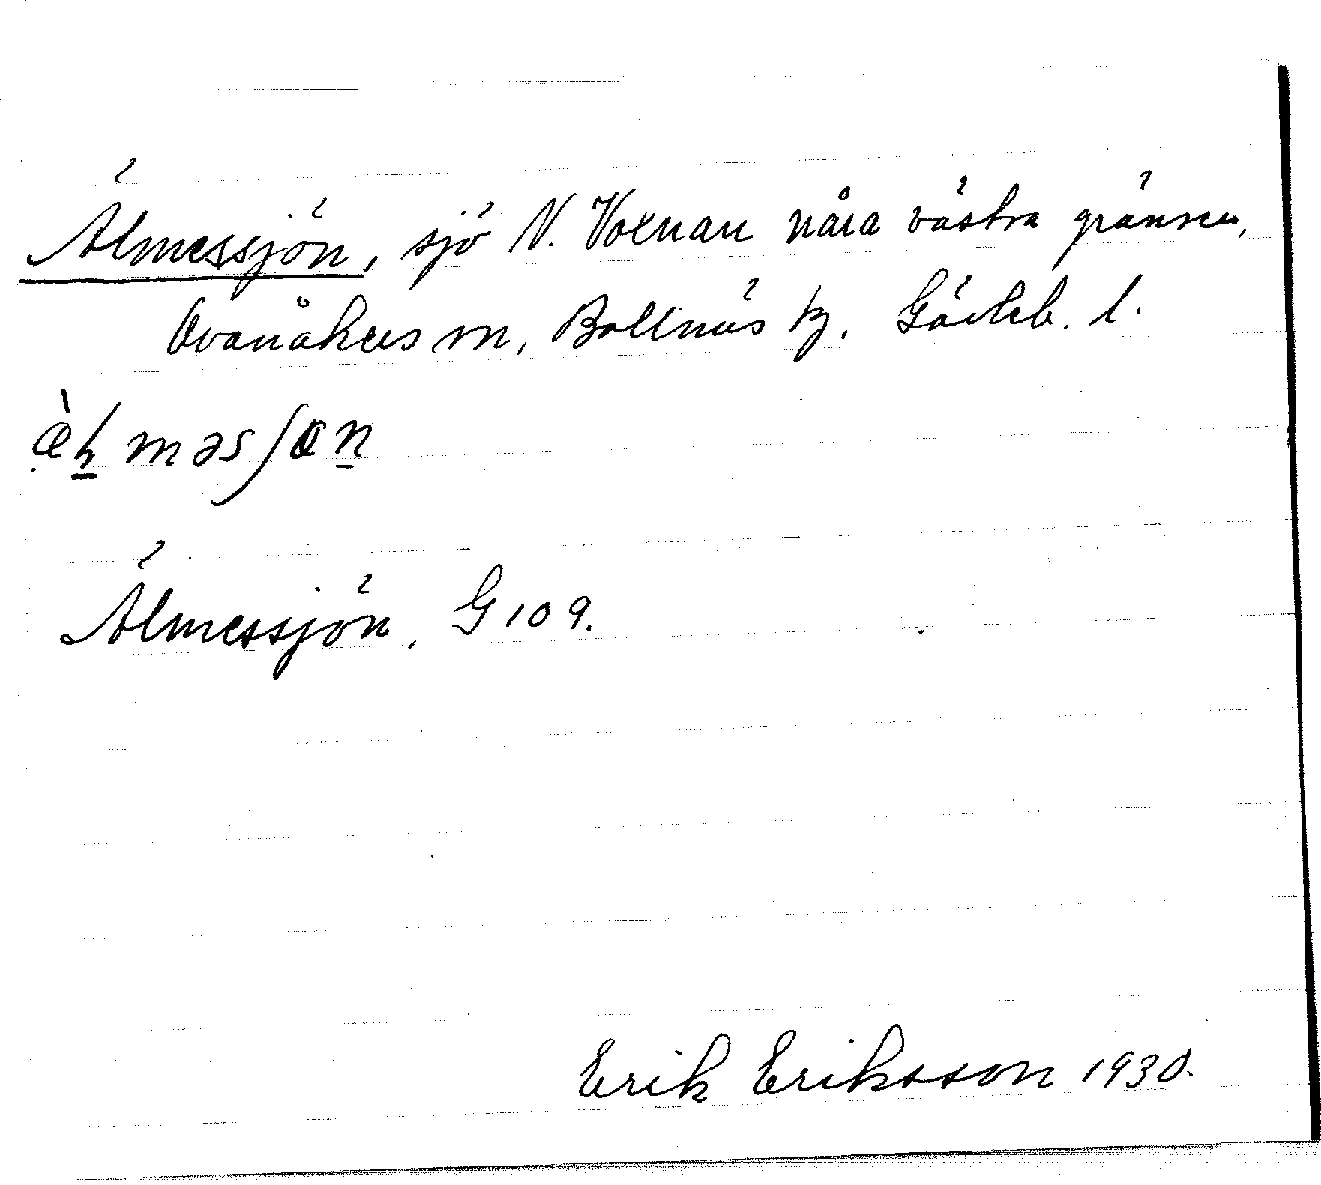 Älmessjön, sjö N. Voxnan nära västra gränsen,
Ovanåkers sn, Bollnäs tg. Gävleb. l.
Älmessjön. G 109.
Erik Eriksson 1930.